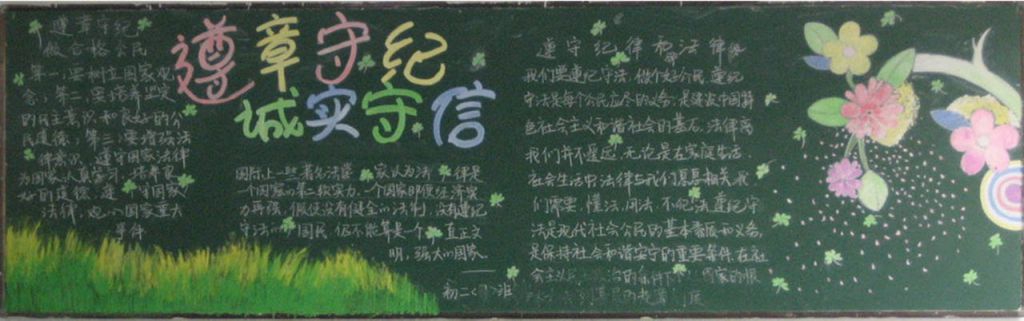 遵章守纪
做合格公民
第一:要树立国家观
念,第二,要培养坚定
的民主意识和良好的公
民道德,第三要增强法
律意识,遵守国家法律
为国家认真学习,培养良
好的道德 遵 国家
法律,也 国家重大
事件
遵章守纪
诚实守信
国际上一些著名法 家认为法 律是
一个国家的第二软实力.一个国家即便经济实
力再强,假使没有健全的法制,没有遵纪
守法的 国民,但不能算是一个真正文
明,强大的国家
初二 班
遵守纪律和法律
我们要遵纪守法,做个好公民,遵纪
守法是每个公民应尽的义务,是建设中国特
色社会主义和谐社会的基石.法律离
我们并不遥远,无论是在家庭生活
社会生活中法律与我们息息相关,我
们需要,懂法,用法,不犯法遵纪守
法是现代社会公民的基本素质和义务,
是保持社会和谐安宁的重要条件.在社
会主义 的条件下 国家的根